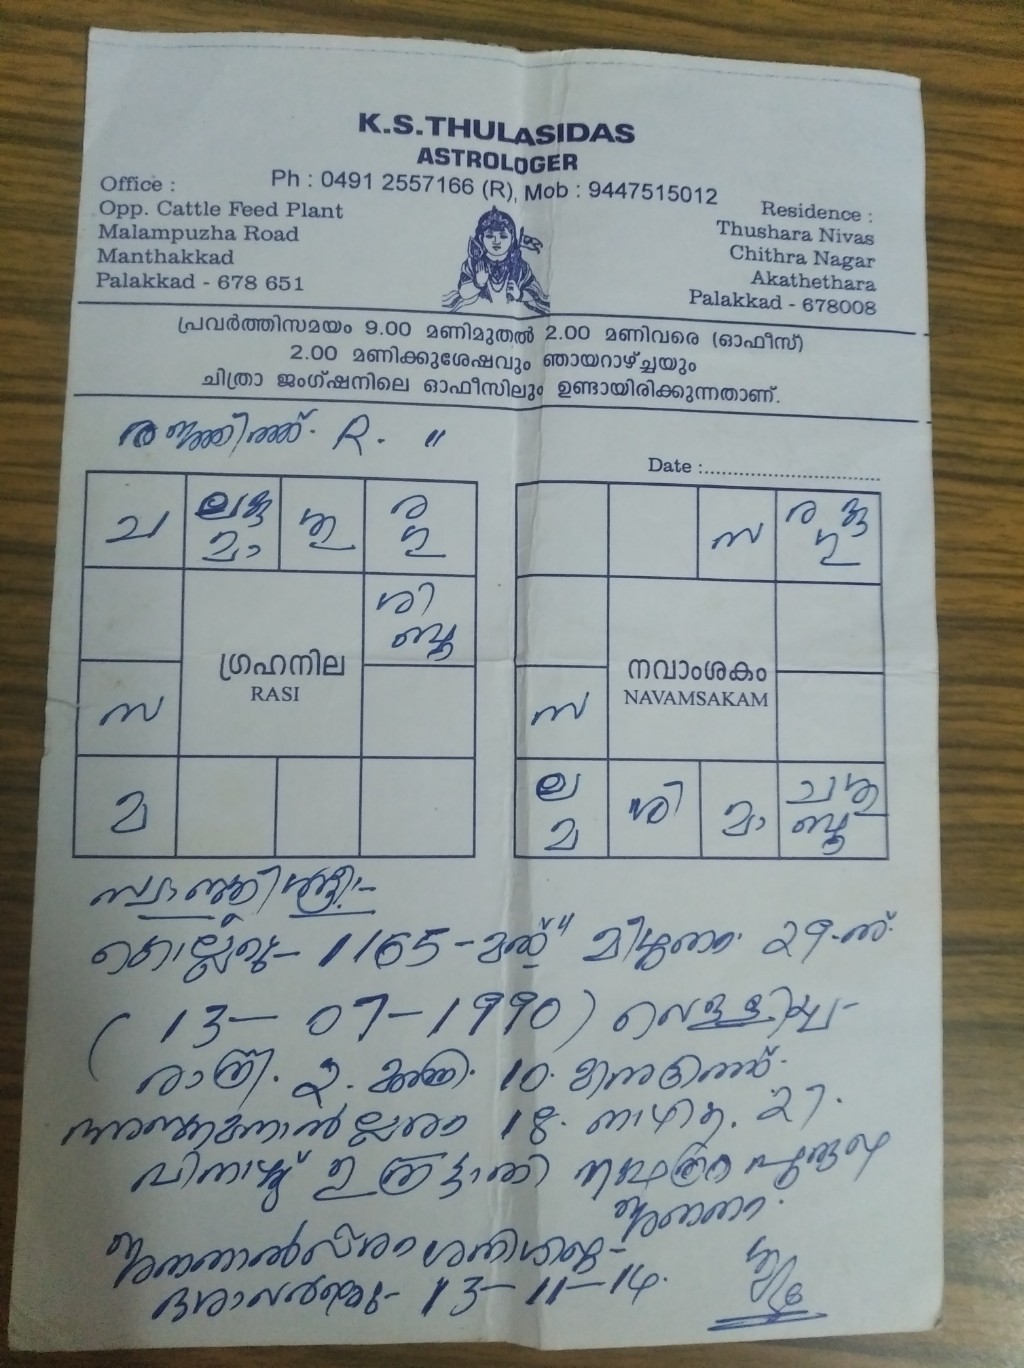 K.S.THULASIDAS
ASTROLOGER
Ph : 0491 2557166 (R), Mob : 9447515012
Office :
Opp. Cattle Feed Plant
Malampuzha Road
Manthakkad
Palakkad - 678 651
Residence :
Thushara Nivas
Chithra Nagar
Akathethara
Palakkad - 678008
പ്രവർത്തിസമയം 9.00 മണിമുതൽ 2.00 മണിവരെ (ഓഫീസ്)
2.00 മണിക്കുശേഷവും ഞായറാഴ്ച്ചയും
ചിത്രാ ജംഗ്ഷനിലെ ഓഫീസിലും ഉണ്ടായിരിക്കുന്നതാണ്.
രഞ്ജിത്ത്. R. "
Date :
ച
മാ
ശു
ര
ഗു
ശി
ബു
ഗ്രഹനില
RASI
സ
മ
സ
ര
ഗു
നവാംശകം
NAVAMSAKAM
സ
ല
മ
ശി
മാ
ച ശു
ബു
സ്വസ്തിശ്രീ-
കൊല്ലവു- 1165-മത് മിഥുനം 29-ന്
( 13-07-1990) വെള്ളിയ-
രാത്രി. 2. മണി. 10. മിനുട്ടിന്ന്.
18. നാഴിക. 27.
ഉത്രട്ടാതി നക്ഷത്ര പുരുഷ
ജനനം.
ശനിദശ-
13-11-14.